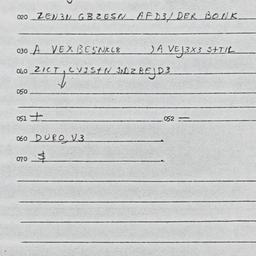 020 ZEN3N GBZESN AFD3/DER BONK
030 A VEXBESNKL8 ) A VEJ3X3 S+TIL
040 ZICT, CVJS+N JNDZBEJD3
050
051 + 052 —
060 DURO V3
070 $